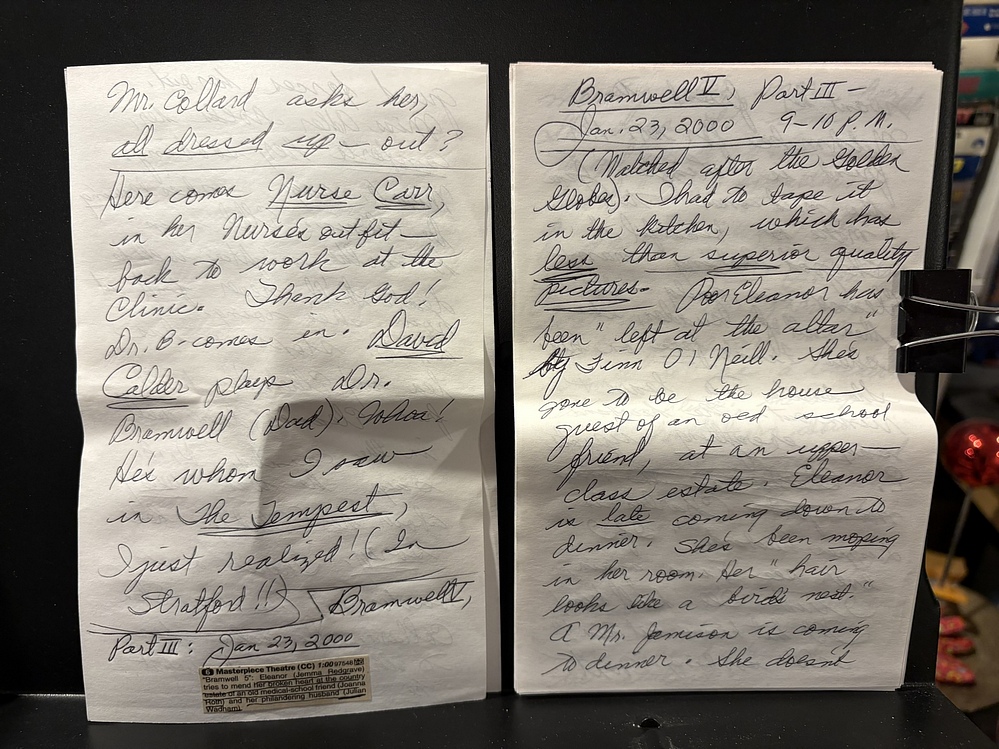 Mr. Collard asks her,
all dressed up – out?
Here comes Nurse Carr,
in her Nurse's outfit –
back to work at the
Clinic. Thank God!
Dr. B. comes in. David
Calder plays Dr.
Bramwell (Dad). Whoa!
He's whom I saw
in The Tempest,
I just realized! (In
Stratford!!) Bramwell V,
Part III: Jan 23, 2000
6 Masterpiece Theatre (CC) 1:00 97548
"Bramwell 5": Eleanor (Jemma Redgrave)
tries to mend her broken heart at the country
estate of an old medical-school friend (Joanna
Roth) and her philandering husband (Julian
Wadham).
Bramwell V, Part III –
Jan. 23, 2000 9–10 P.M.
(Watched after the Golden
Globes). I had to tape it
in the kitchen, which has
less than superior quality
pictures – Poor Eleanor has
been "left at the altar"
by Finn O'Neill. She's
gone to be the house
guest of an old school
friend, at an upper–
class estate. Eleanor
is late coming down to
dinner. She's been moping
in her room. Her "hair
looks like a bird's nest."
A Mr. Jamison is coming
to dinner. She doesn't